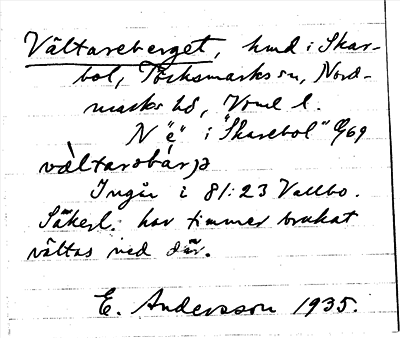 Vältareberget, hmd i Skar-
bol, Töcksmarks sn, Nord-
marks hd, Vrml l.
N "e" i "Skarebol" G69
vàltarəbárjə
Ingår i 81:23 Vallbo.
Säkerl. har timmer brukat
vältas ned där.
E. Andersson 1935.